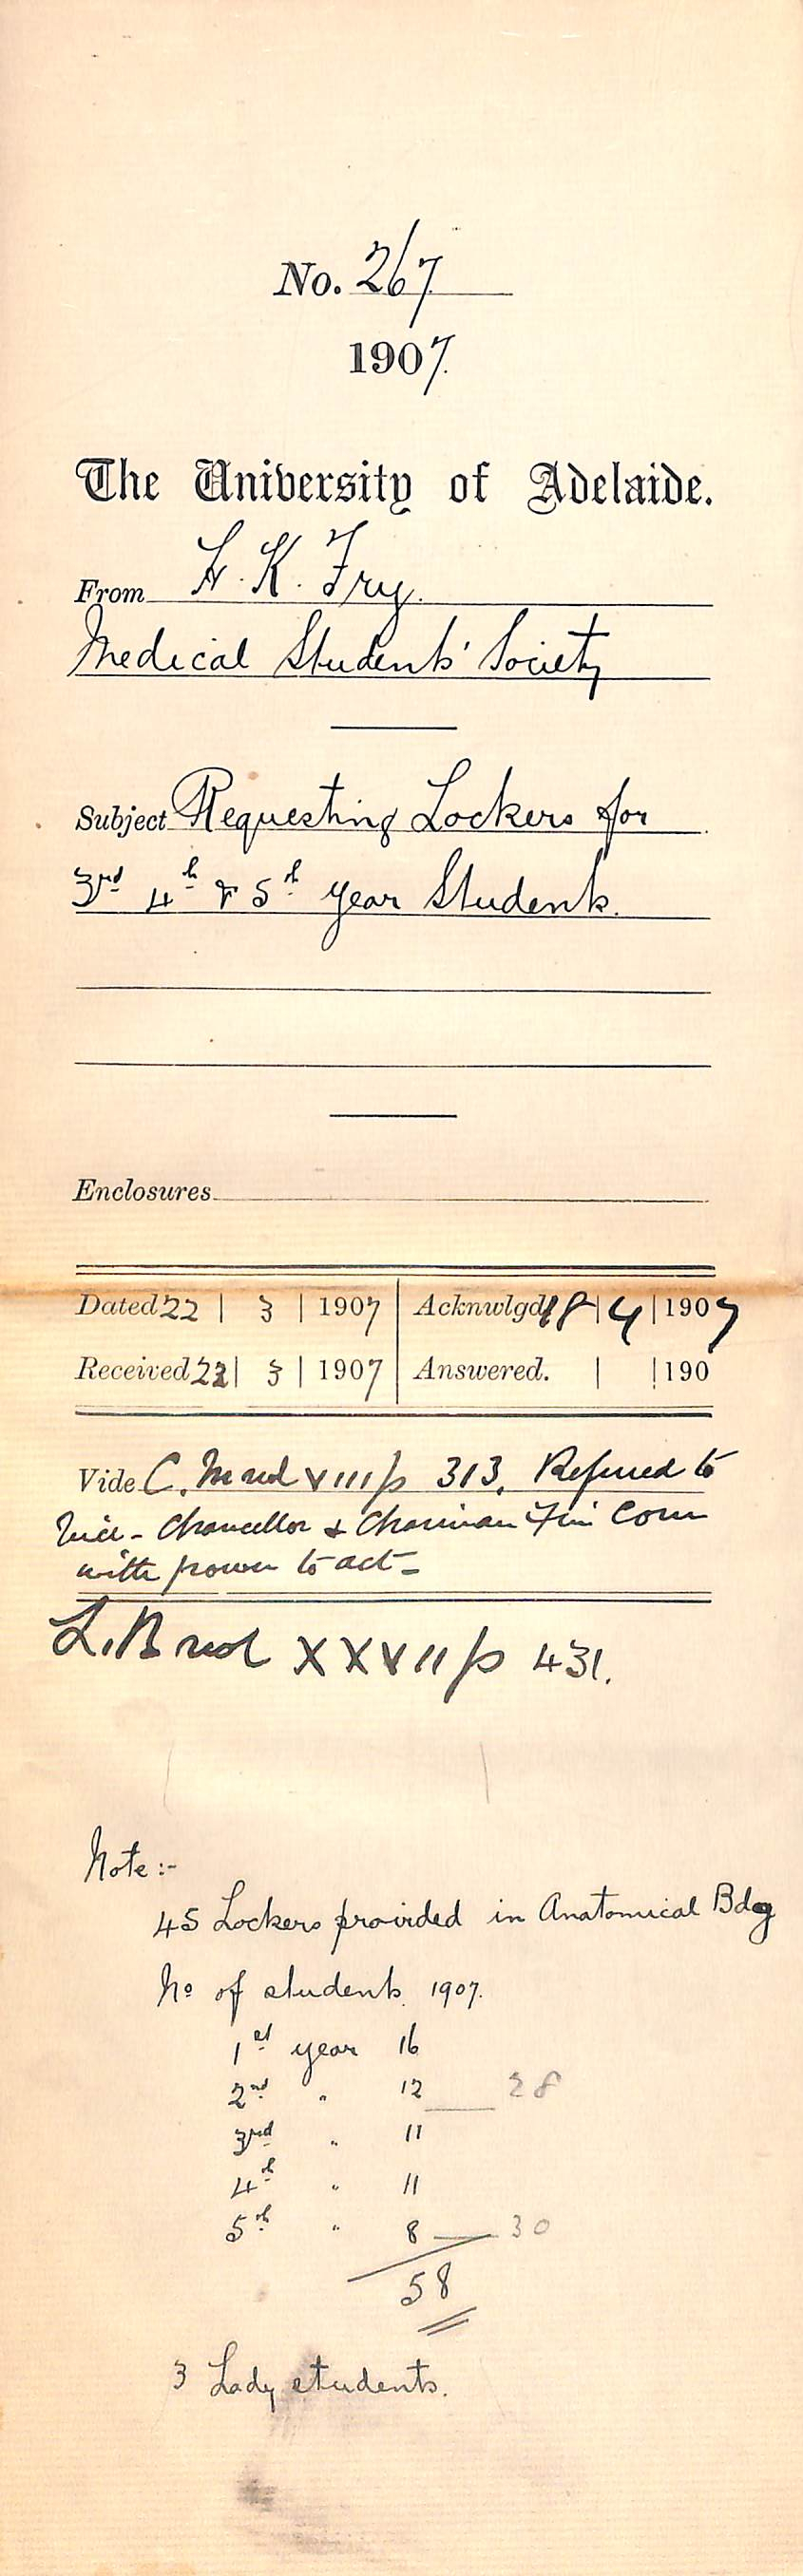 No. 267
1907.
The University of Adelaide.
From H. K. Fry.
Medical Students' Society
Subject Requesting Lockers for
3rd 4th & 5th year Students.
Enclosures
Dated 22 | 3 | 1907 | Acknwlgd 18 | 4 | 1907
Received 22 | 3 | 1907 | Answered. | | 190
Vide C. M vol VIII p 313. Referred to
Vice-Chancellor & Chairman Fin Com
with power to act-
L.B vol XXVII p 431.
Note:-
45 Lockers provided in Anatomical Bdg
No of students. 1907.
1st year 16
2nd " 12 28
3rd " 11
4th " 11
5th " 8 30
58
3 Lady students.